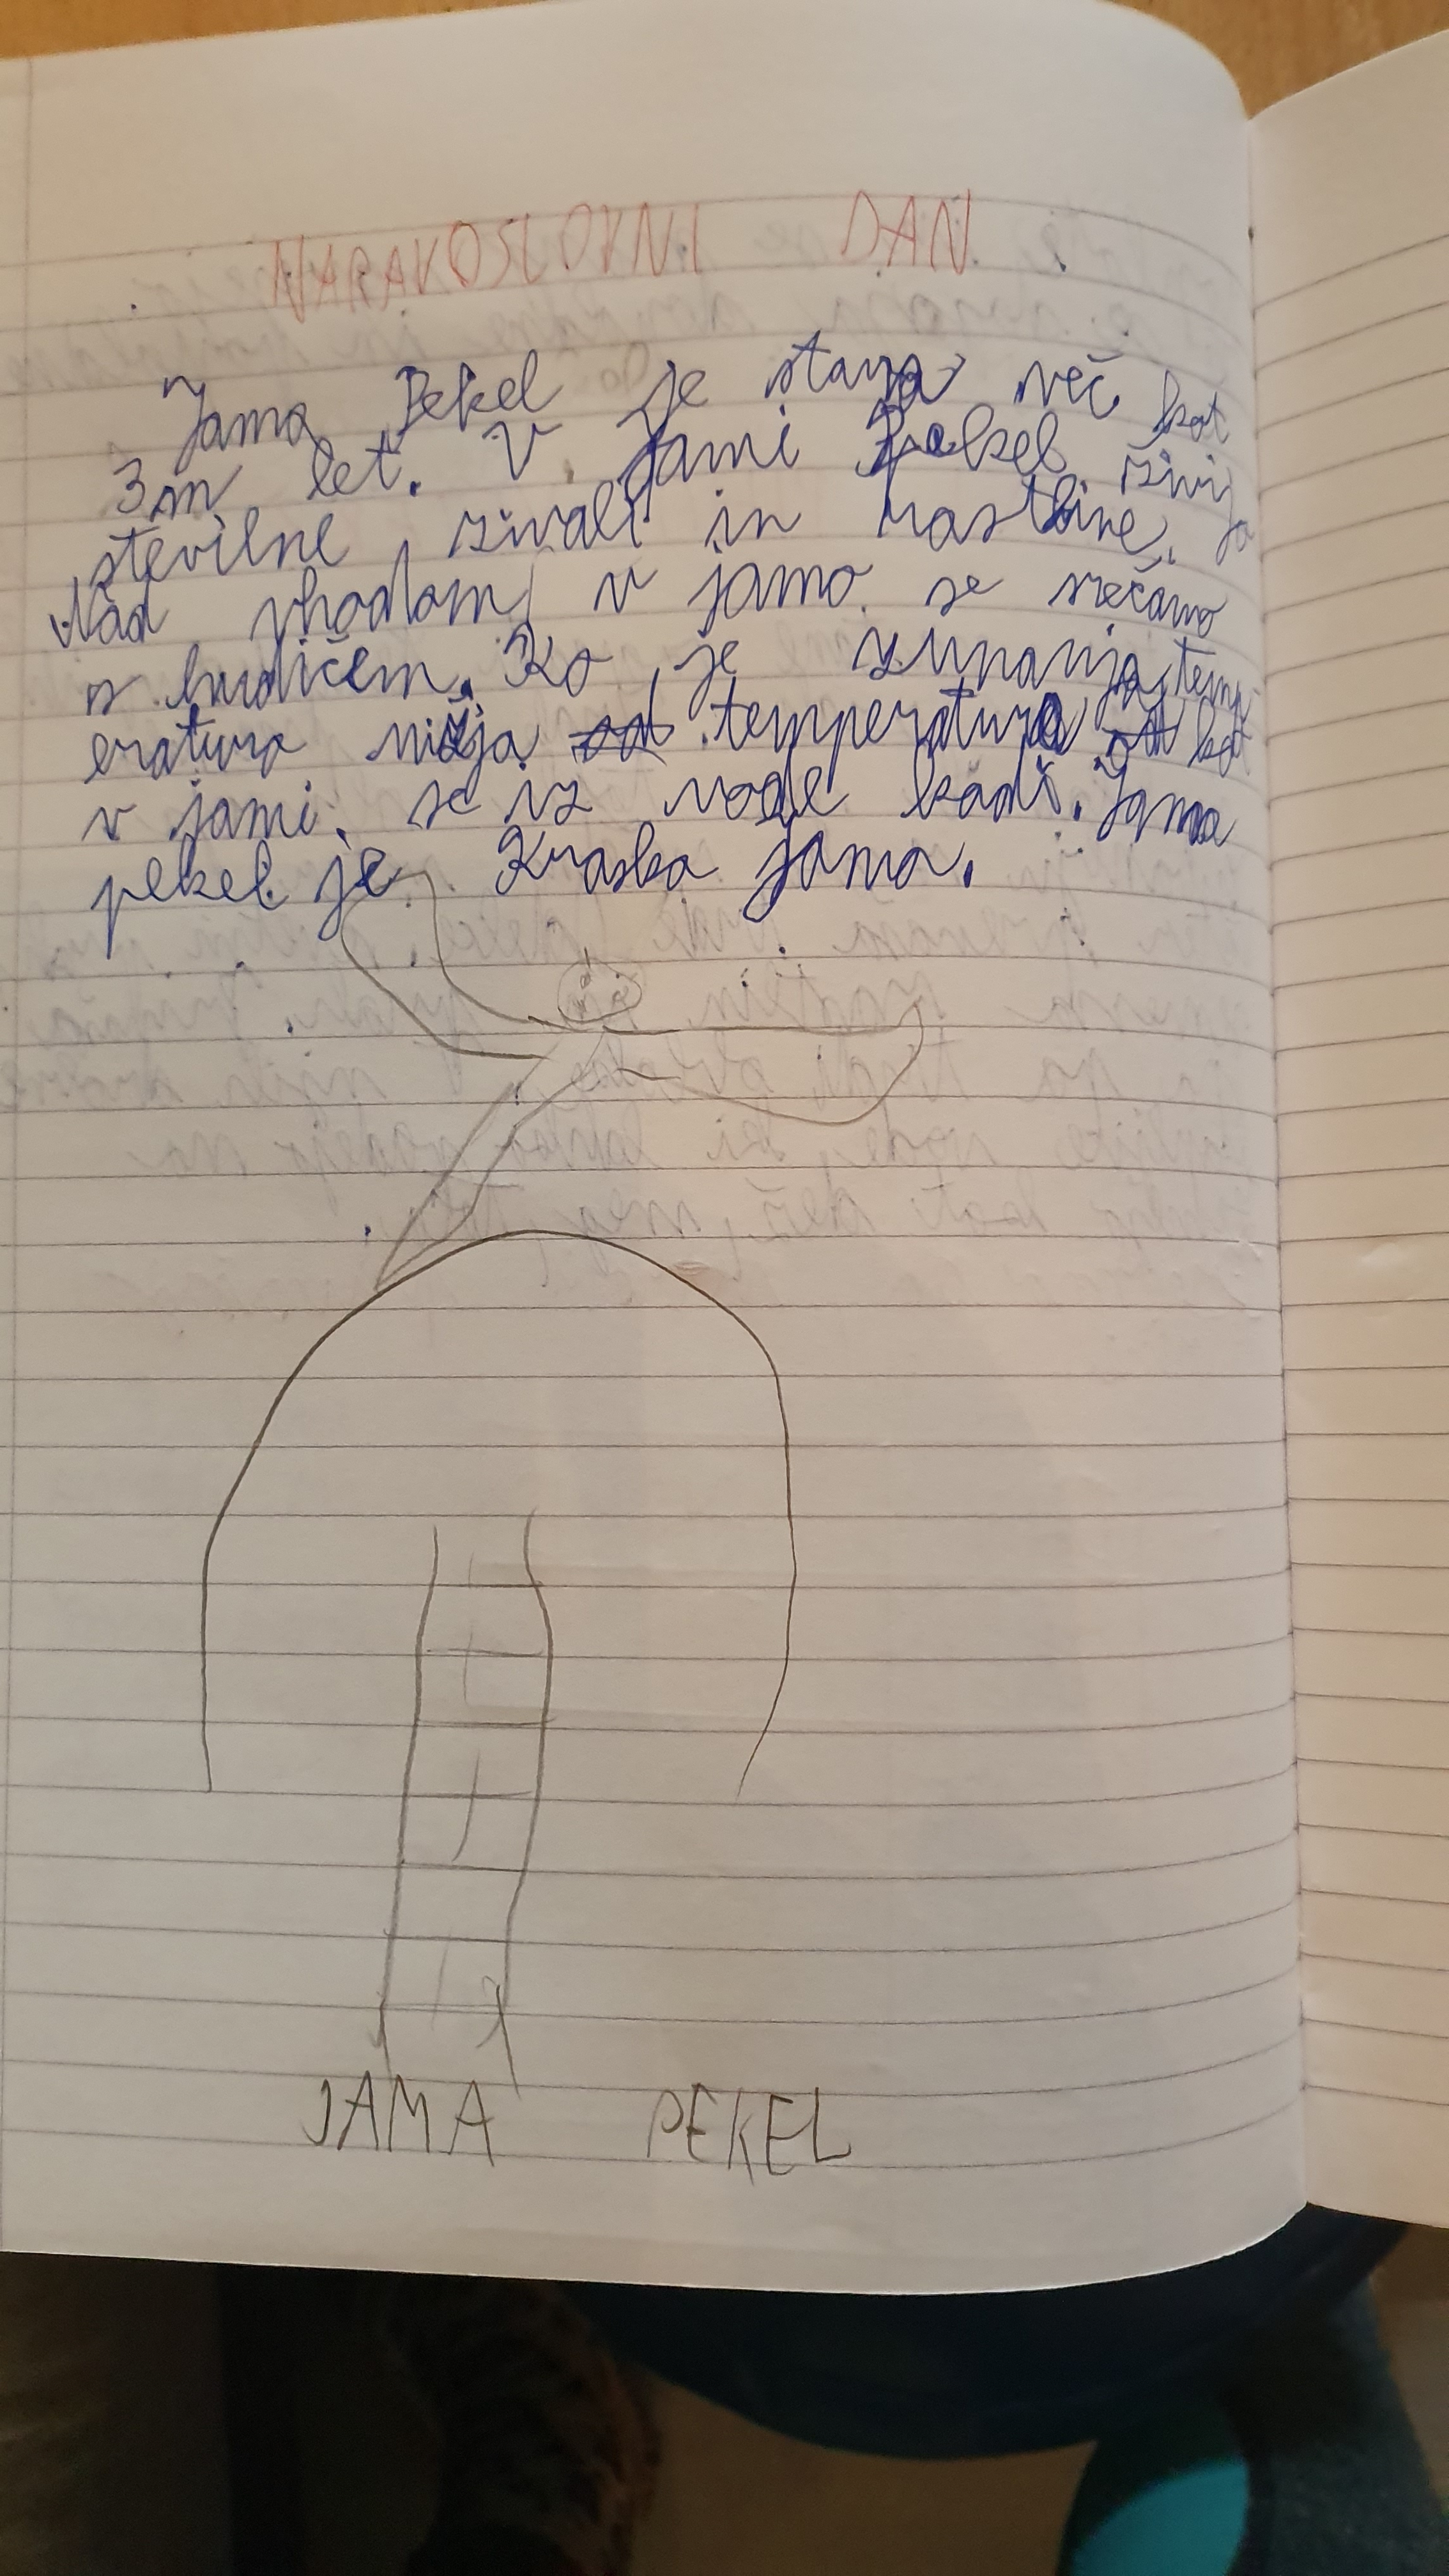 NARAVOSLOVNI DAN
Jama Pekel je stara več kot
3m let. V Jami Pekel živi
jo
številne živali in rastline.
Nad vhodom v jamo se srečamo
s hudičem. Ko je zunanja temp
eratura nižja od temperatura od kot
v jami, se iz vode kadi. Jama
pekel je Kraska jama.
JAMA PEKEL